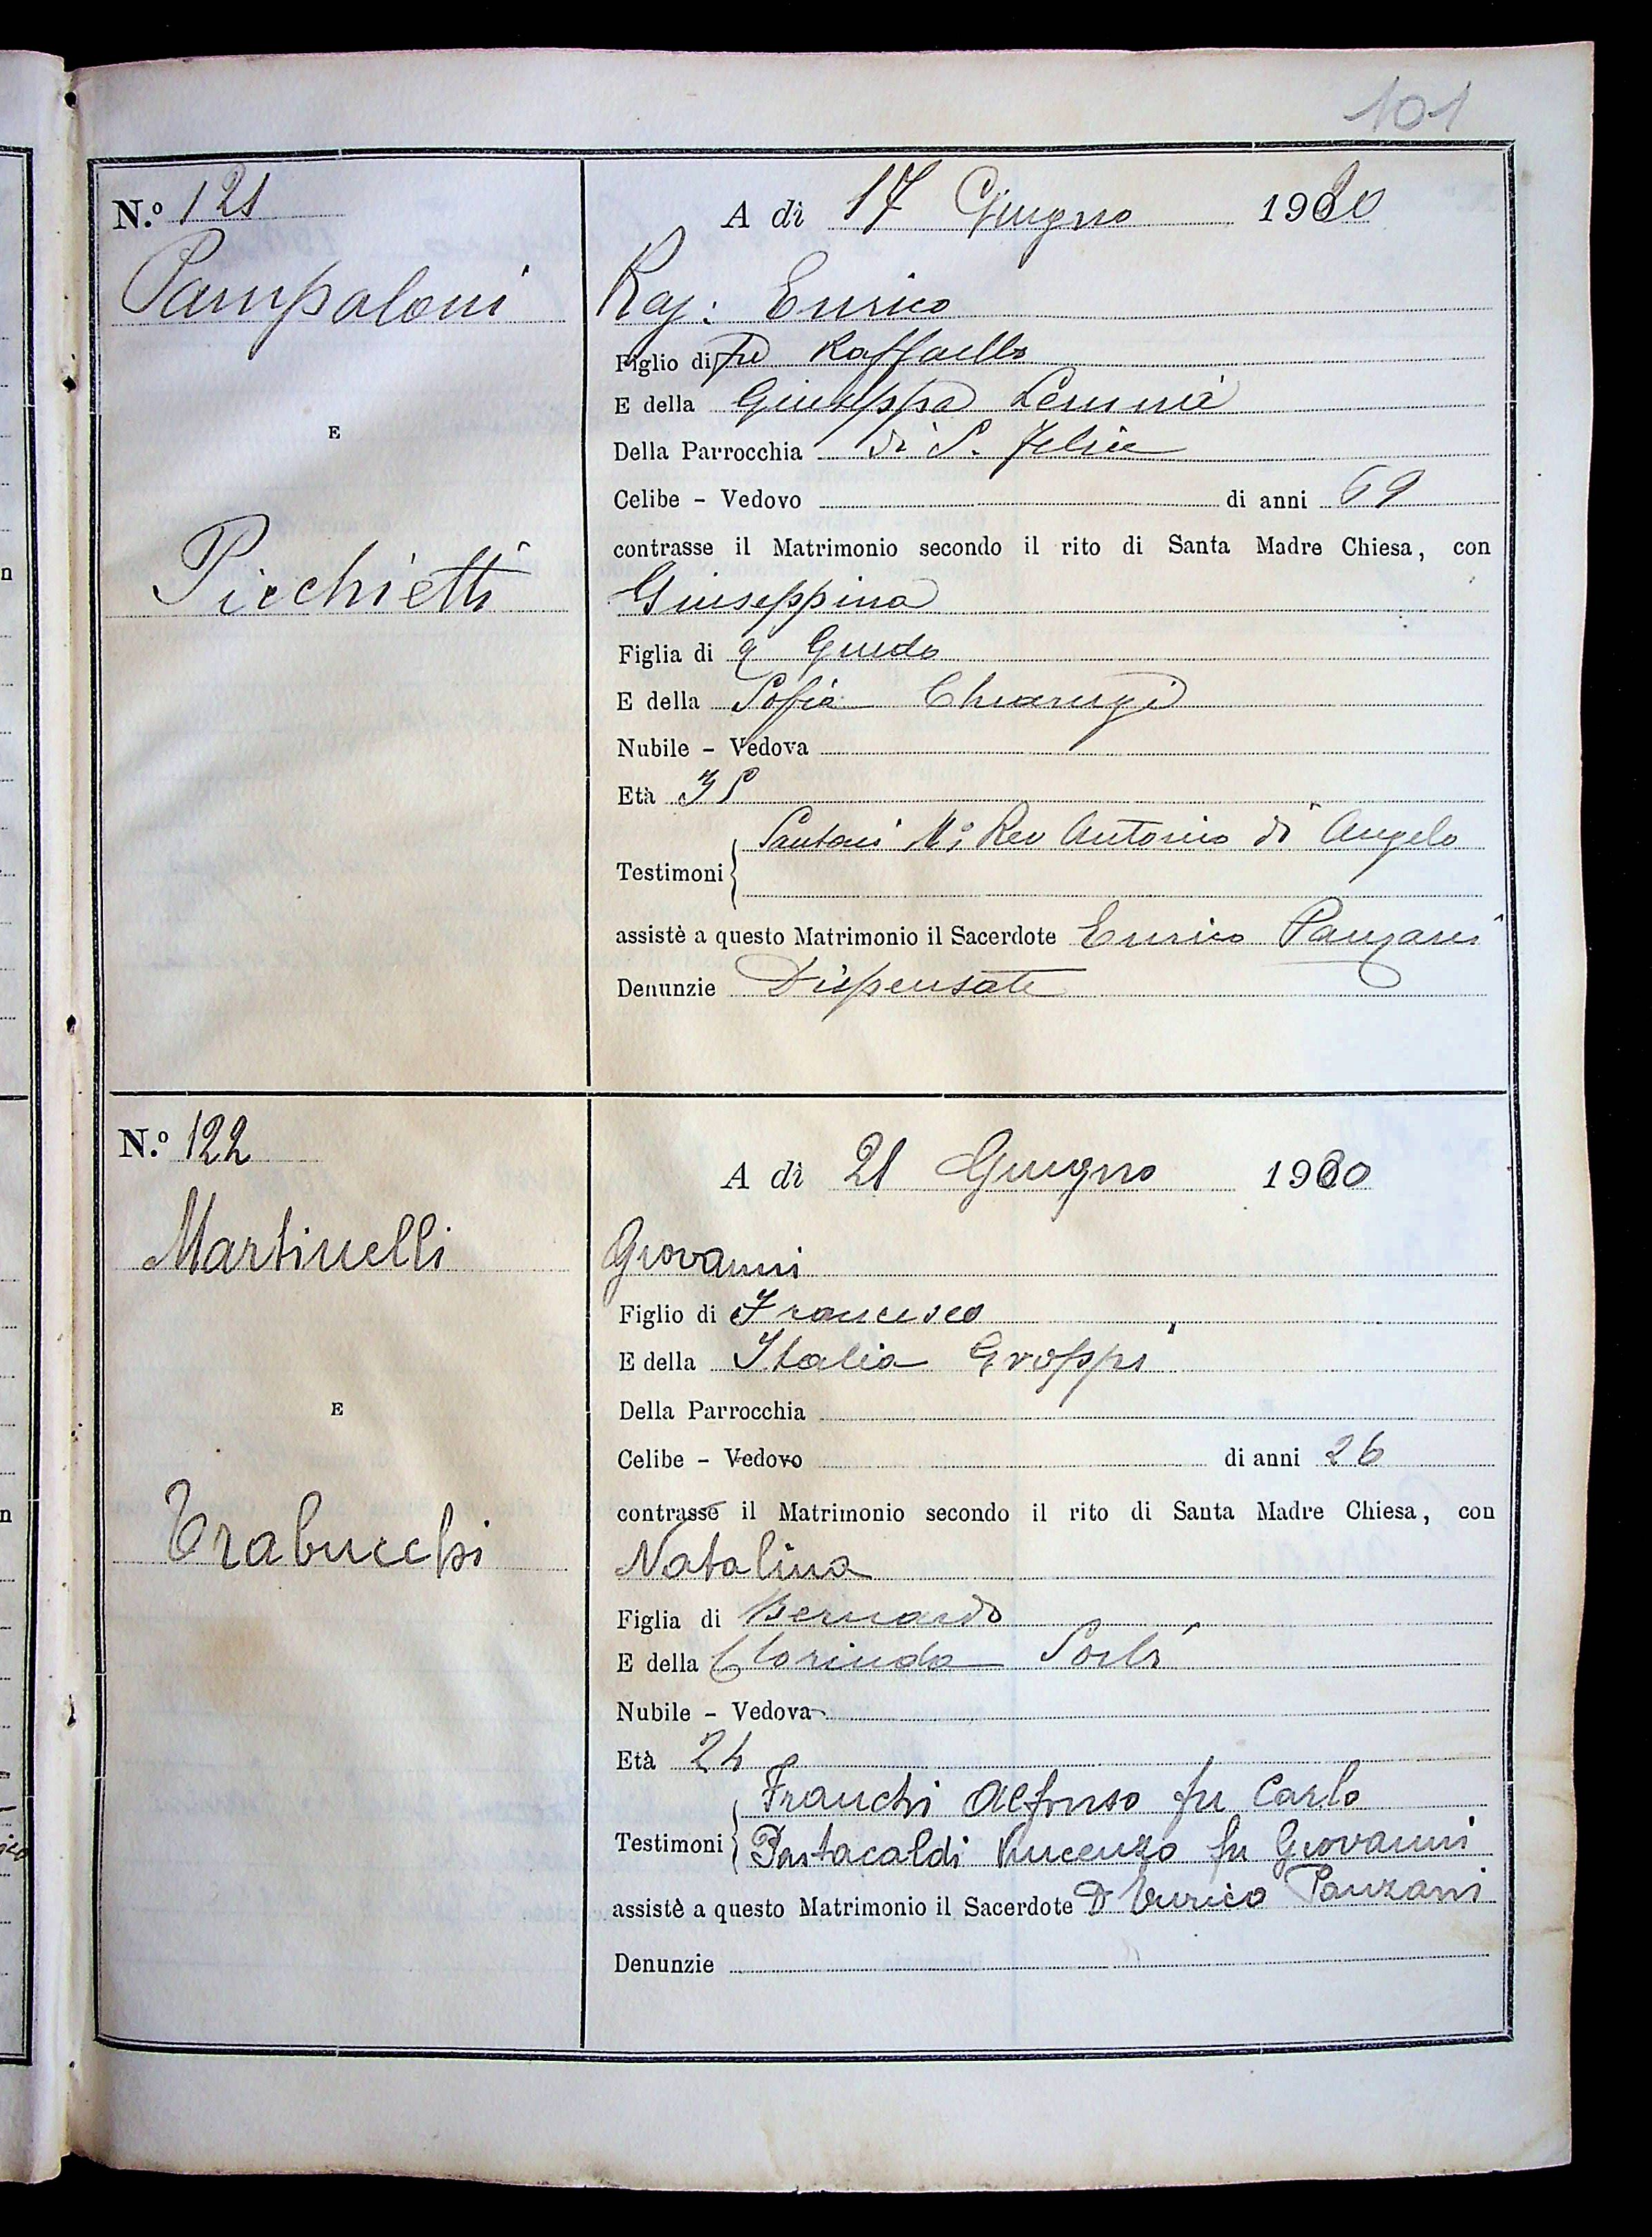 101
N.º 121
A dì 17 Giugno 1930
Pampaloni
Rag: Enrico
Figlio di fu Raffaello
E della Giuseppa
E
Della Parrocchia di S. Felice
Celibe - Vedovo di anni 69
contrasse il Matrimonio secondo il rito di Santa Madre Chiesa, con
Picchietti
Giuseppina
Figlia di q Guido
E della Sofia Chiarugi
Nubile - Vedova
Età 35
Santoni M: Rev Antonio di Angelo
Testimoni
assistè a questo Matrimonio il Sacerdote Enrico Panzani
Denunzie Dispensate
N.º 122
A dì 21 Giugno 1930
Martinelli
Giovanni
Figlio di Francesco
E della Italia Groppi
E
Della Parrocchia
Celibe - Vedovo di anni 26
contrasse il Matrimonio secondo il rito di Santa Madre Chiesa, con
Trabucchi
Natalina
Figlia di Bernardo
E della Clorinda
Nubile - Vedova
Età 24
Franchi Alfonso fu Carlo
Testimoni
Pastacaldi Vincenzo fu Giovanni
assistè a questo Matrimonio il Sacerdote D Enrico Panzani
Denunzie